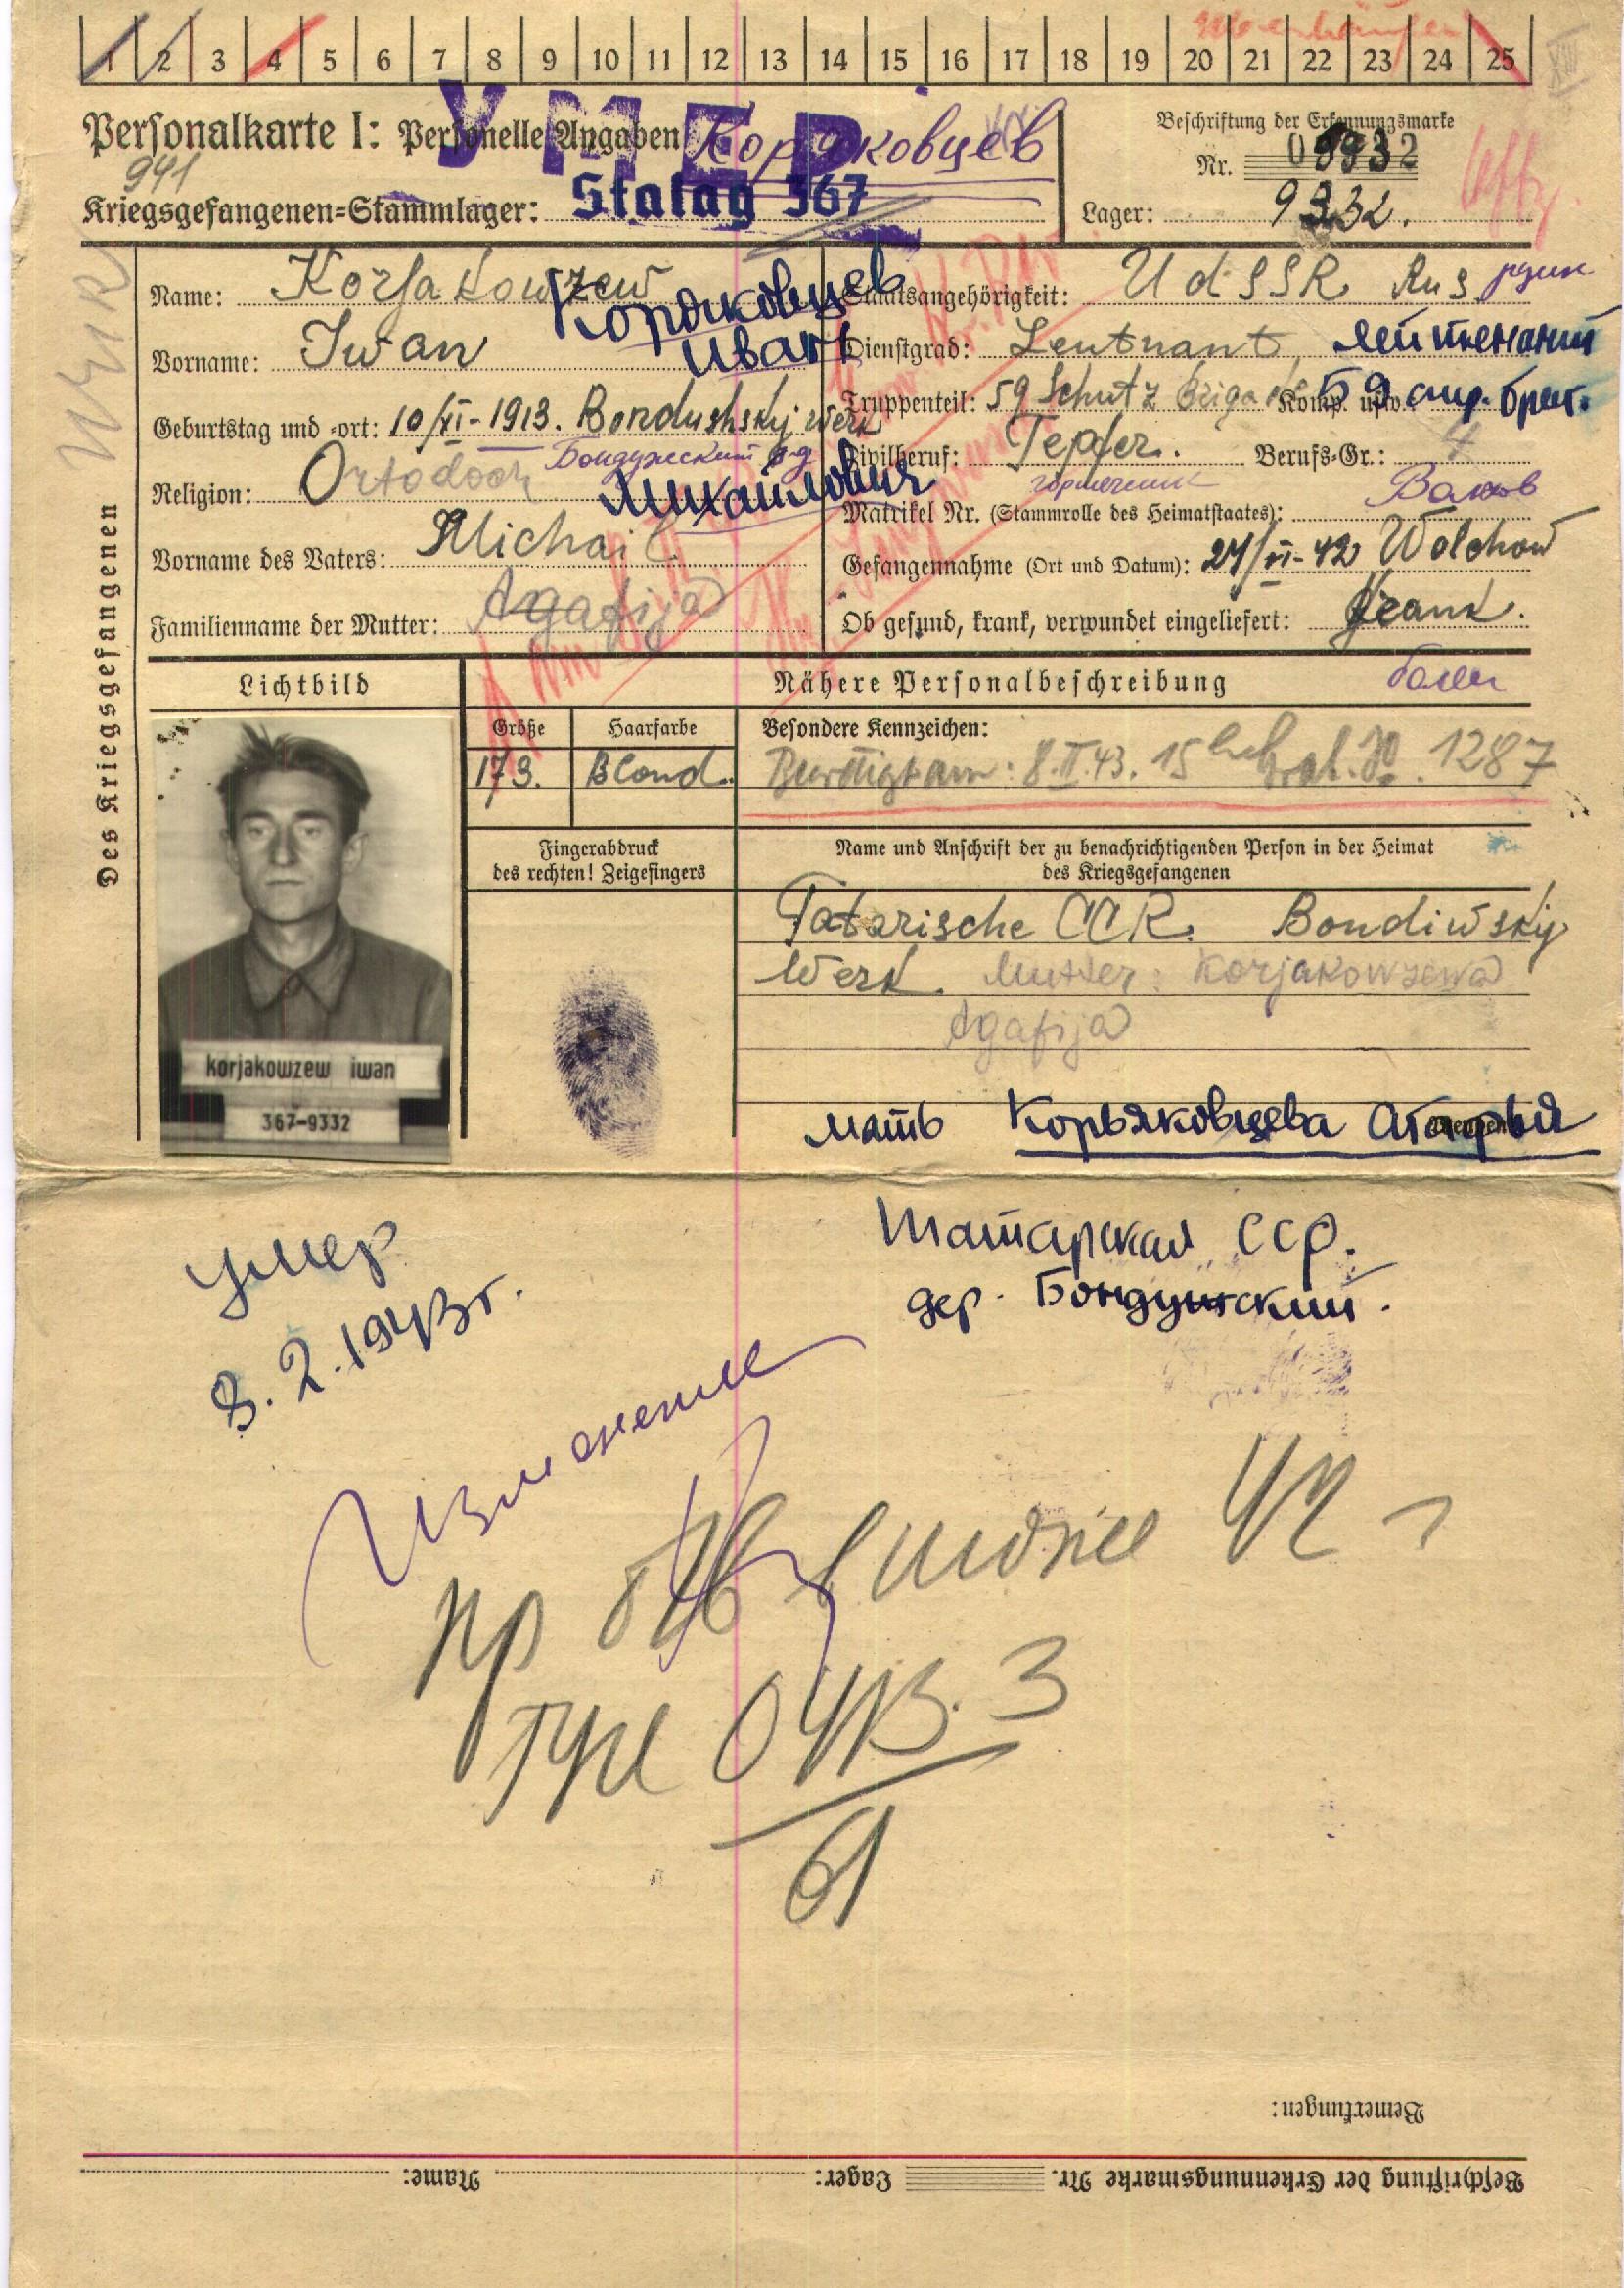 1 2 3 4 5 6 7 8 9 10 11 12 13 14 15 16 17 18 19 20 21 22 23 24 25
УМЕР
Personalkarte I: Personelle Angaben Коряковцев
Beschriftung der Erkennungsmarke
Nr. 09932
941
Kriegsgefangenen-Stammlager: Stalag 367
Lager: 9332.
Des Kriegsgefangenen
Name: Korjakowzew Коряковцев
Vorname: Iwan Иван
Geburtstag und -ort: 10/XI-1913. Bondushskij Werk
Бондужский з-д
Religion: Ortodoox Михайлович
Vorname des Vaters: Michail
Familienname der Mutter: Agafija
Staatsangehörigkeit: UdSSR Rus
Dienstgrad: Leutnant, лейтенант
Truppenteil: 59 Schutz Brigade Komp. usw. 59 стр. бриг.
Zivilberuf: Tepfer. Berufs-Gr.: 4
Matrikel Nr. (Stammrolle des Heimatstaates):
Gefangennahme (Ort und Datum): 27/VI-42 Wolchow
Ob gesund, krank, verwundet eingeliefert: Krank.
болен
Lichtbild
Nähere Personalbeschreibung
Größe Haarfarbe Besondere Kennzeichen:
173. Blond. Beerdigt am: 8.II.43. 1287
Fingerabdruck
des rechten! Zeigefingers
Name und Anschrift der zu benachrichtigenden Person in der Heimat
des Kriegsgefangenen
Tatarische CCR. Bondiwskij
Werk. Mutter: Korjakowzewa
Agafija
korjakowzew iwan
367-9332
мать Корьяковцева Агафья
Татарская ССР.
дер. Бондужский.
умер
8.2.1943г.
Изменение
Bemerkungen:
Beschriftung der Erkennungsmarke Nr. Lager: Name: